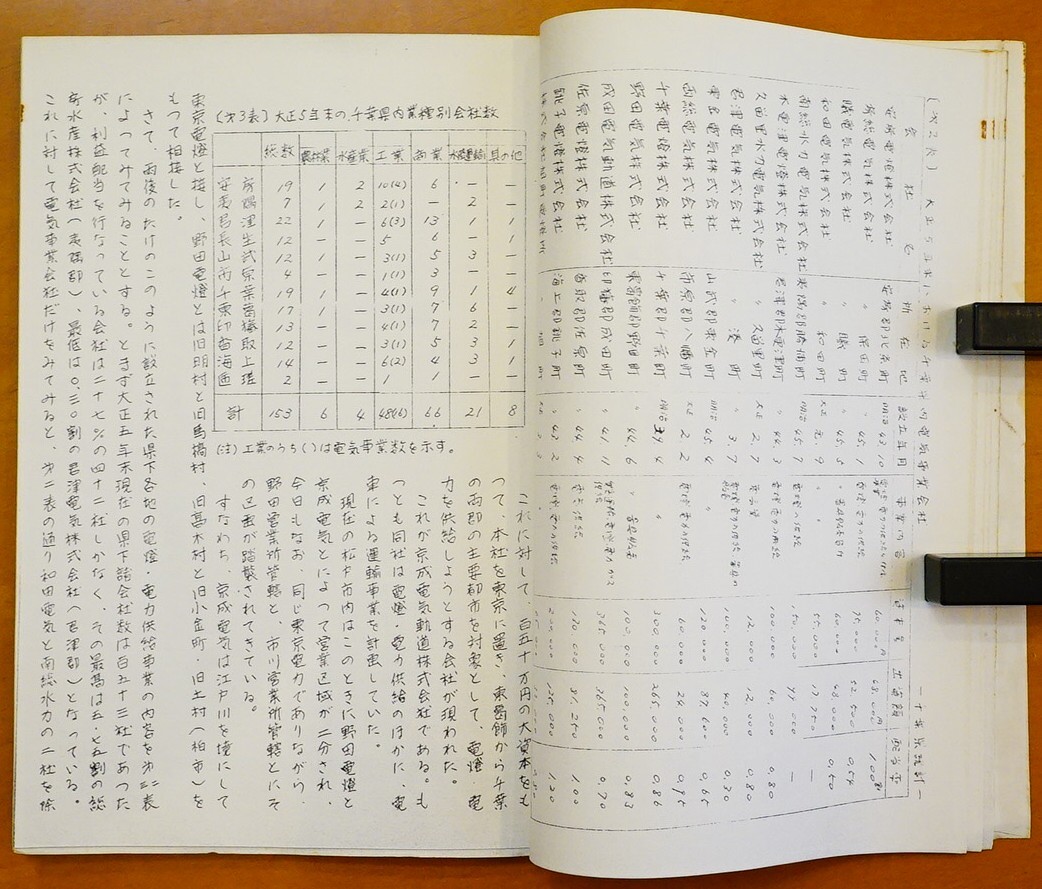 (第2表) 大正5年末における千葉県内電気事業会社
―千葉県統計―
会社名 所在地 設立年月 事業内容 資本金 出資額 配当率
安房電燈株式会社 安房郡北条町 明治43.10 60,000円 48,000円 1.00割
房総電気株式会社 〃 保田町 〃 45.1 75,000 52,500 0.54
曦電気株式会社 〃 曦町 〃 45.1 60,000 48,000 0.50
和田電気株式会社 〃 和田町 大正元.9 55,000 17,750 —
南総水力電気株式会社 夷隅郡勝浦町 明治45.7 150,000 77,000 —
木更津電燈株式会社 君津郡木更津町 〃 44.3 100,000 60,000 0.80
久留里水力電気株式会社 〃 久留里町 大正2.7 12,000 12,000 0.80
君津電気株式会社 〃 湊町 〃 3.7 100,000 40,000 0.30
東金電気株式会社 山武郡東金町 明治45.4 120,000 87,600 0.65
西総電気株式会社 市原郡八幡町 大正2.2 電燈電力の供給 60,000 24,000 0.95
千葉電燈株式会社 千葉郡千葉町 明治39.4 300,000 265,000 0.86
野田電気株式会社 東葛飾郡野田町 〃 44.6 〃 100,000 100,000 0.83
成田電気軌道株式会社 印旛郡成田町 〃 41.11 365,000 365,000 0.70
佐原電燈株式会社 香取郡佐原町 〃 44.4 電気供給 170,000 81,250 1.00
銚子電燈株式会社 海上郡銚子町 〃 43.2 電燈電力の供給 200,000 125,000 1.20
(第3表) 大正5年末の、千葉県内業種別会社数
総数 農林業 水産業 工業 商業 水陸運輸 其の他
安房 19 1 2 10(4) 6 — —
夷隅 7 1 2 2(1) — 2 —
君津 22 1 — 6(3) 13 1 1
長生 12 — — 5 6 — 1
山武 12 1 — 3(1) 5 3 —
市原 4 — — 1(1) 3 — —
千葉 19 1 — 4(1) 9 1 4
東葛 17 1 — 3(1) 7 6 —
印旛 13 — — 4(1) 7 2 —
香取 12 — — 3(1) 5 3 1
海上 14 — — 6(2) 4 3 1
匝瑳 2 — — 1 1 — —
計 153 6 4 48(16) 66 21 8
(注) 工業のうち( )は電気事業数を示す。
これに対して、百五十万円の大資本をも
って、本社を東京に置き、東葛飾から千葉
の両郡の主要都市を対象として、電燈、電
力を供給しようとする会社が現われた。
これが京成電気軌道株式会社である。も
っとも同社は電燈・電力供給のほかに、電
車による運輸事業を計画していた。
現在の松戸市内はこのときに野田電燈と
京成電気とによって営業区域が二分され、
今日もなお、同じ東京電力でありながら、
野田営業所管轄と、市川営業所管轄とにそ
の区画が踏襲されてきている。
すなわち、京成電気は江戸川を境にして
東京電燈と接し、野田電燈とは旧明村と旧馬橋村、旧高木村と旧小金町・旧土村(柏市)を
もって相接した。
さて、雨後のたけのこのように設立された県下各地の電燈・電力供給事業の内容を第二表
によってみてみることとする。とまず大正五年末現在の県下諸会社数は百五十三社であった
が、利益配当を行なっている会社は二十七%の四十二社しかなく、その最高は五・七五割の総
寿水産株式会社(夷隅郡)、最低は〇・三〇割の君津電気株式会社(君津郡)となっている。
これに対して電気事業会社だけをみてみると、第二表の通り和田電気と南総水力の二社を除